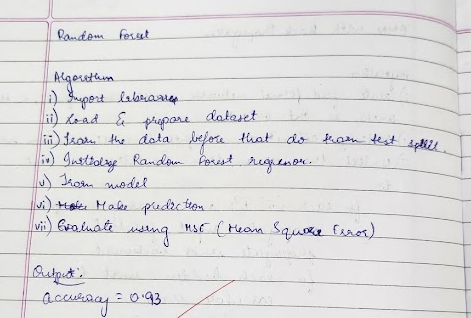 Random Forest
Algorithm
i) Import libraries
ii) Load & prepare dataset
iii) Train the data before that do train test split.
iv) Initialize Random Forest regressor.
v) Train model
vi) Make prediction
vii) Evaluate using MSE (Mean Square Error)
Output:
accuracy = 0.93